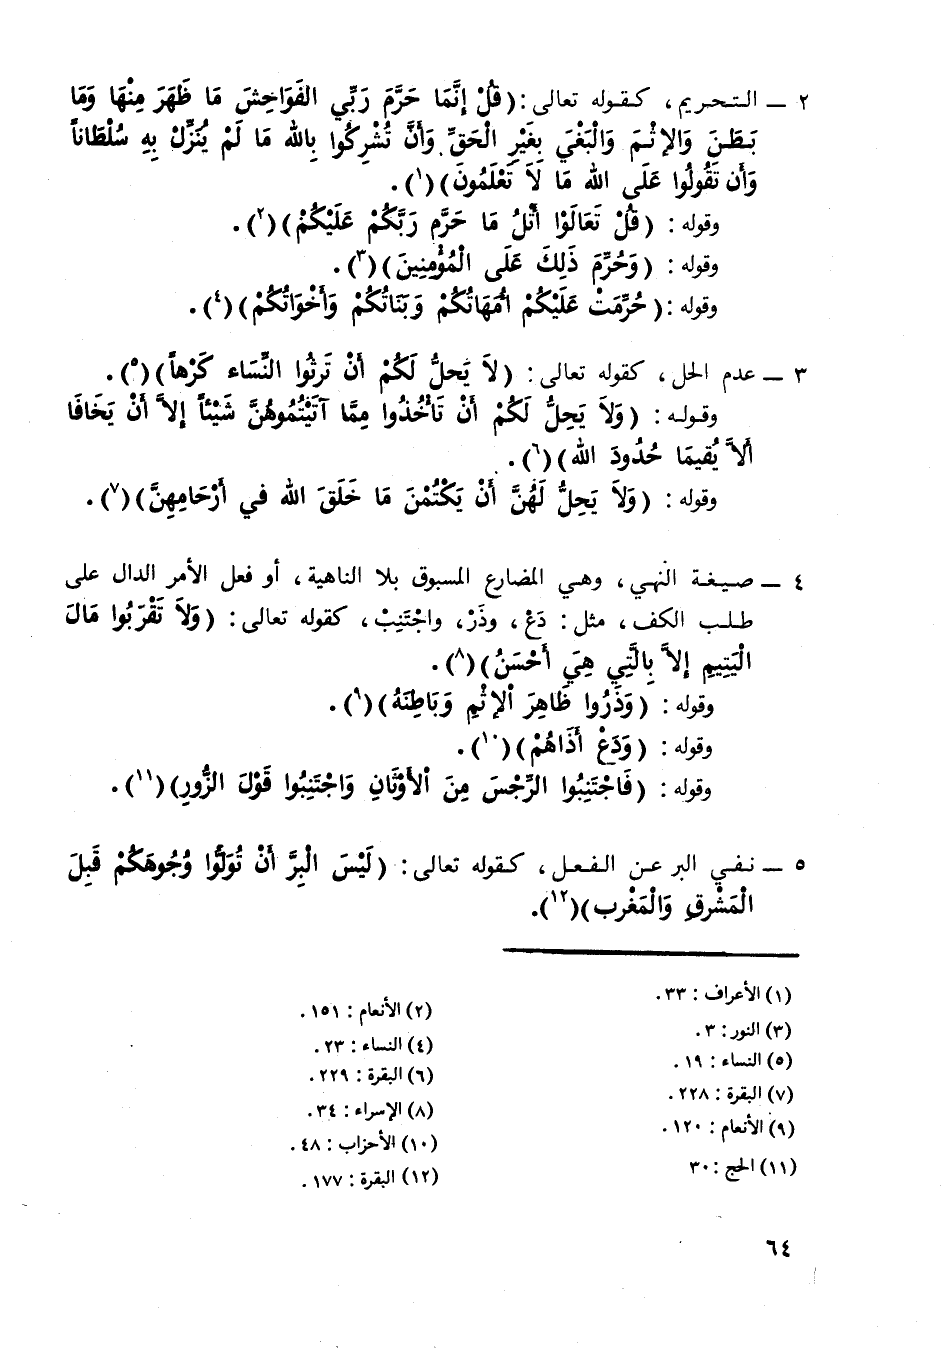 ٢ ــ التحريم، كقوله تعالى: (قُلْ إِنَّمَا حَرَّمَ رَبِّي الفَوَاحِشَ مَا ظَهَرَ مِنْهَا وَمَا
بَطَنَ وَالإِثْمَ وَالْبَغْيَ بِغَيْرِ الْحَقِّ وَأَنَّ تُشْرِكُوا بِاللهِ مَا لَمْ يُنَزِّلْ بِهِ سُلْطَاناً
وَأَن تَقُولُوا عَلَى اللهِ مَا لاَ تَعْلَمُونَ)(١).
وقوله: (قُلْ تَعَالَوْا أَتْلُ مَا حَرَّمَ رَبُّكُمْ عَلَيْكُمْ)(٢).
وقوله: (وَحُرِّمَ ذَلِكَ عَلَى الْمُؤْمِنِينَ)(٣).
وقوله: (حُرِّمَتْ عَلَيْكُمْ أُمَّهَاتُكُمْ وَبَنَاتُكُمْ وَأَخَوَاتُكُمْ)(٤).
٣ ــ عدم الحل، كقوله تعالى: (لاَ يَحلُّ لَكُمْ أَنْ تَرِثُوا النِّسَاء كَرْهاً)(٥).
وقوله: (وَلاَ يَحِلُّ لَكُمْ أَنْ تَأْخُذُوا مِمَّا آتَيْتُمُوهُنَّ شَيْئاً إِلاَّ أَنْ يَخَافَا
أَلاَّ يُقيمَا حُدُودَ الله)(٦).
وقوله: (وَلاَ يَحِلُّ لَهُنَّ أَنْ يَكْتُمْنَ مَا خَلَقَ اللهُ في أَرْحَامِهِنَّ)(٧).
٤ ــ صيغة النهي، وهي المضارع المسبوق بلا الناهية، أو فعل الأمر الدال على
طلب الكف، مثل: دَعْ، وذَرْ، واجْتَنِبْ، كقوله تعالى: (وَلاَ تَقْرَبُوا مَالَ
الْيَتِيمِ إِلاَّ بِالَّتِي هِيَ أَحْسَنُ)(٨).
وقوله: (وَذَرُوا ظَاهِرَ الإِثْمِ وَبَاطِنَهُ)(٩).
وقوله: (وَدَعْ أَذَاهُمْ)(١٠).
وقوله: (فَاجْتَنِبُوا الرِّجْسَ مِنَ الأَوْثَانِ وَاجْتَنِبُوا قَوْلَ الزُّورِ)(١١).
٥ ــ نفي البر عن الفعل، كقوله تعالى: (لَيْسَ الْبِرَّ أَنْ تُوَلُّوا وُجُوهَكُمْ قَبِلَ
الْمَشْرقِ وَالْمَغْرب)(١٢).
(١) الأعراف: ٣٣.
(٢) الأنعام: ١٥١.
(٣) النور: ٣.
(٤) النساء: ٢٣.
(٥) النساء: ١٩.
(٦) البقرة: ٢٢٩.
(٧) البقرة: ٢٢٨.
(٨) الإسراء: ٣٤.
(٩) الأنعام: ١٢٠.
(١٠) الأحزاب: ٤٨.
(١١) الحج: ٣٠
(١٢) البقرة: ١٧٧.
٦٤